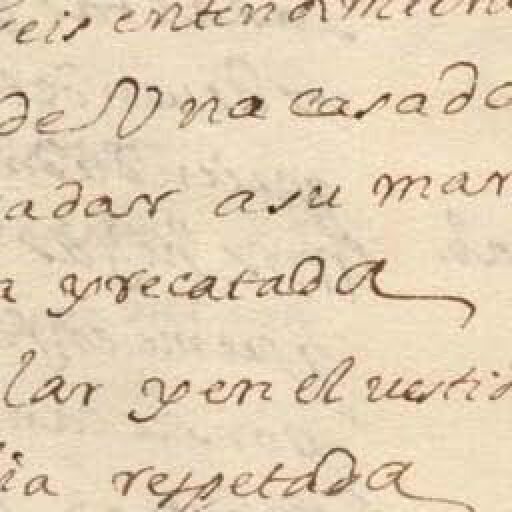 seis entendimien
de Vna casada
adar asu mar
a yrecatada
lar yen el uestid
ia respetada